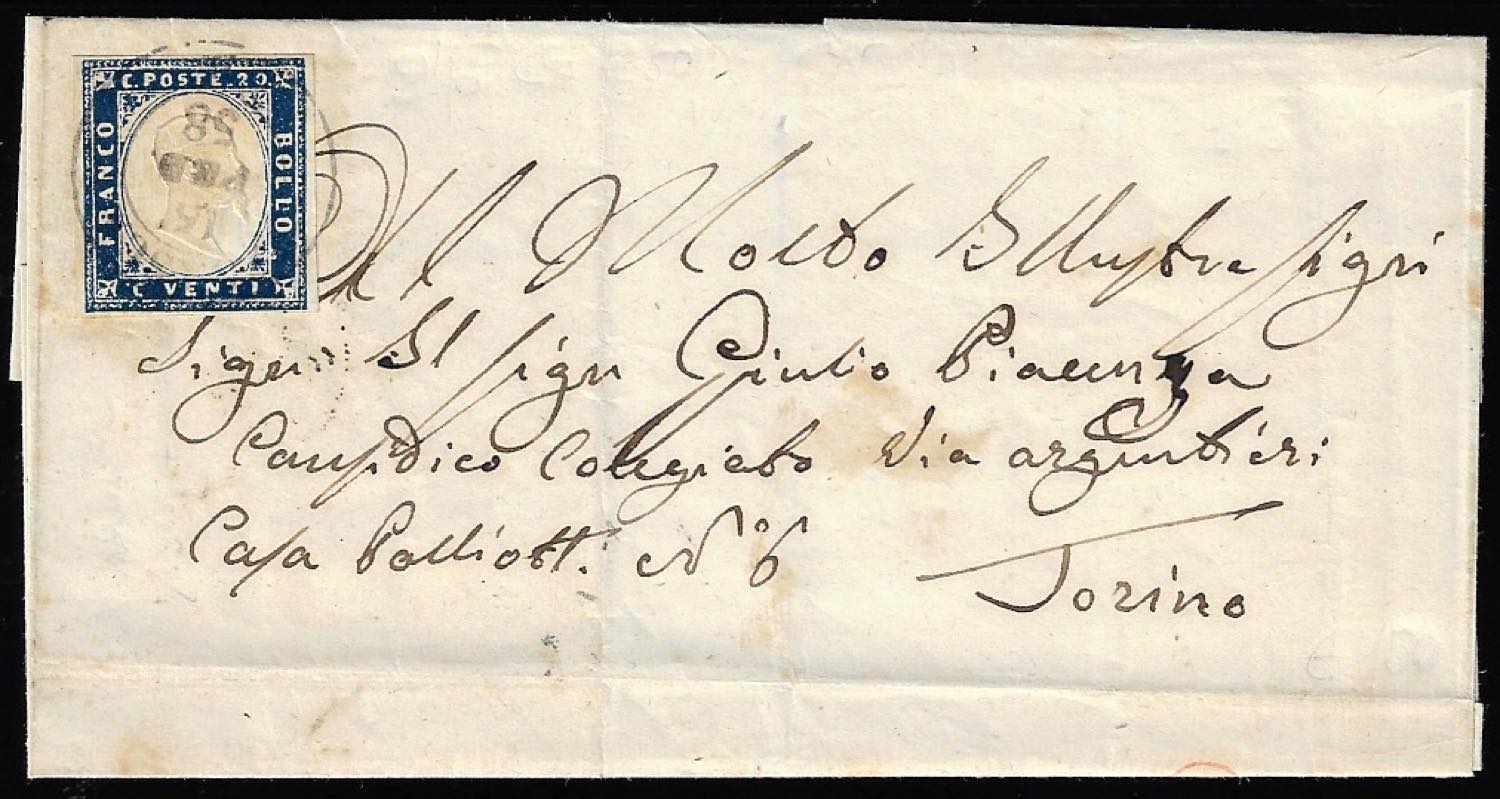 C. POSTE. 20.
FRANCO
BOLLO
C VENTI
58
Al Molto Illustre Sigri
Sigri Il Sigri Giulio Piacenza
Causidico Collegiato Via argentiéri
Casa Polliott. N° 6
Torino